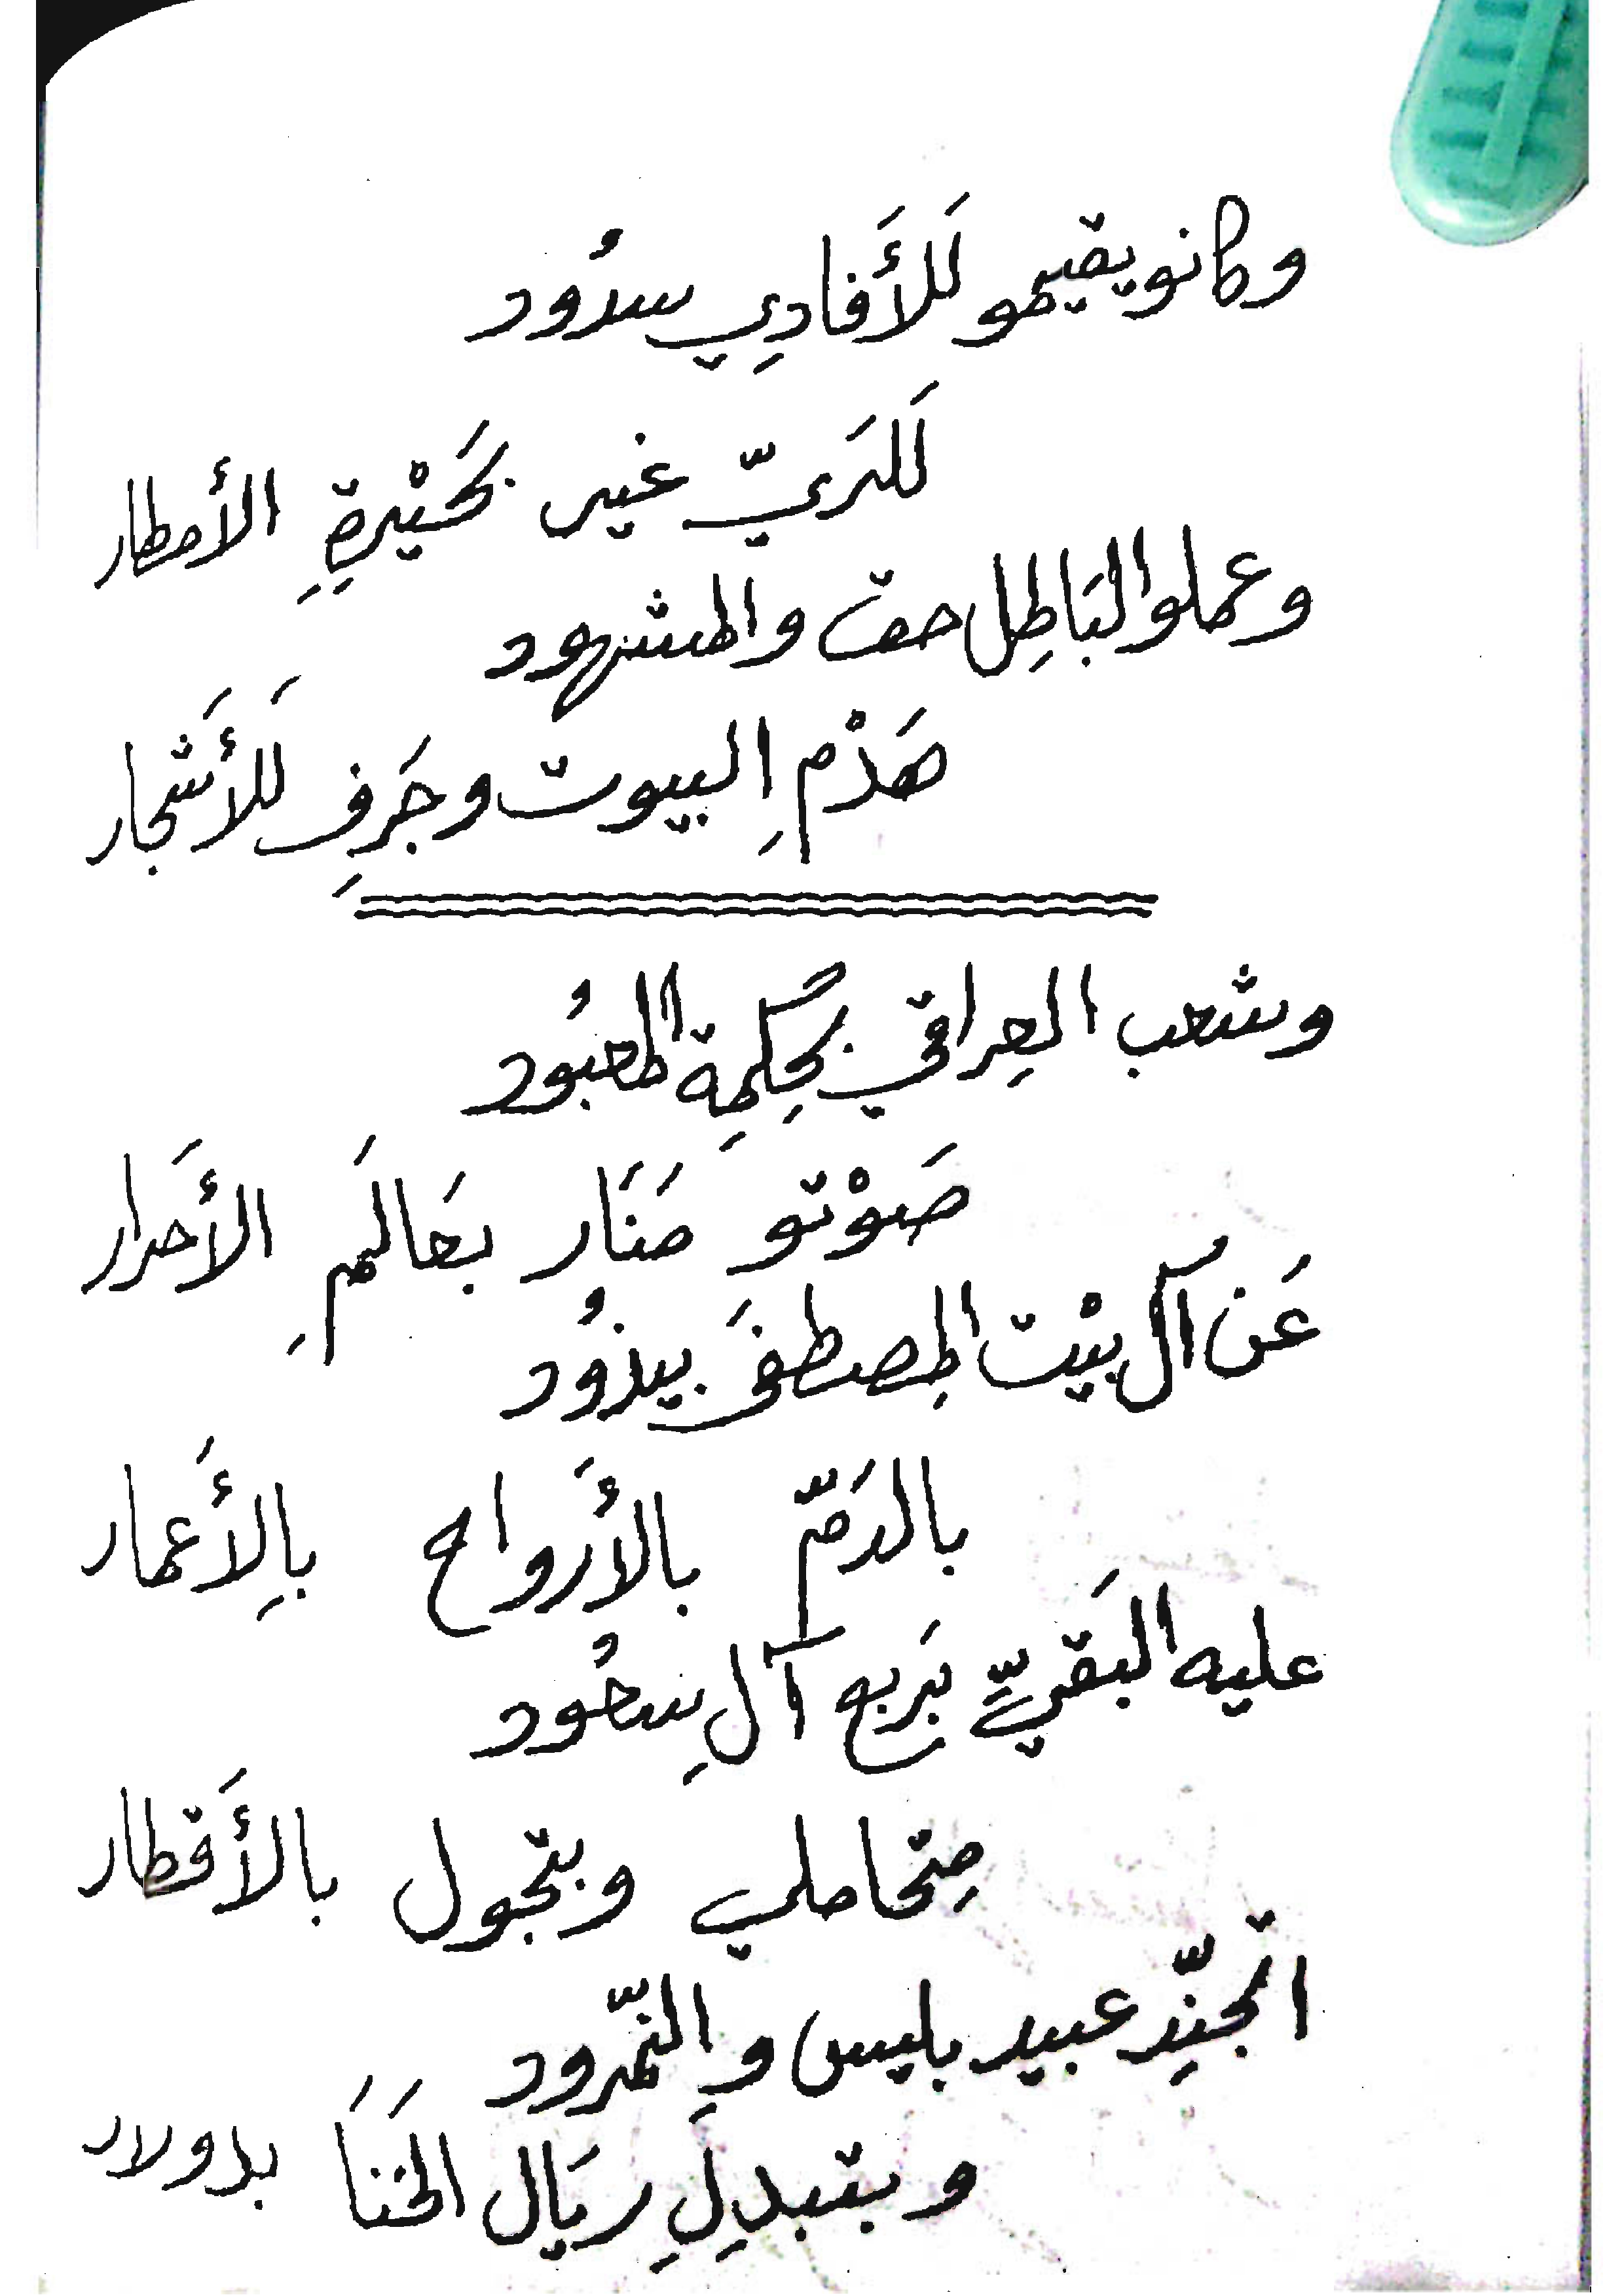 وكانو يقيمو لَلأَفادِي سدُود
لَلرَيّ غير بحَيْرةِ الأمطار
وعملوا البَاطِل حق والمشهود
هَدْمِ البيوت وجَرفِ لَلأَشجار
وشعب العِراقي بحِكمِة المعبُود
صَوْتو مَنَار بعَالَمِ الأحَرار
عَن آل بيْت المِصطفىَ بيذُود
بالدَمّ بالأَرواح بالِأَعمار
عليه البَقَريِّ بَربع آلِ سعُود
مِتحاملي وبتجول بالأَقطار
اتجنِّد عبيد بليس والنمّرود
وبتبدِلِ ريَال الخَنَا بدولار